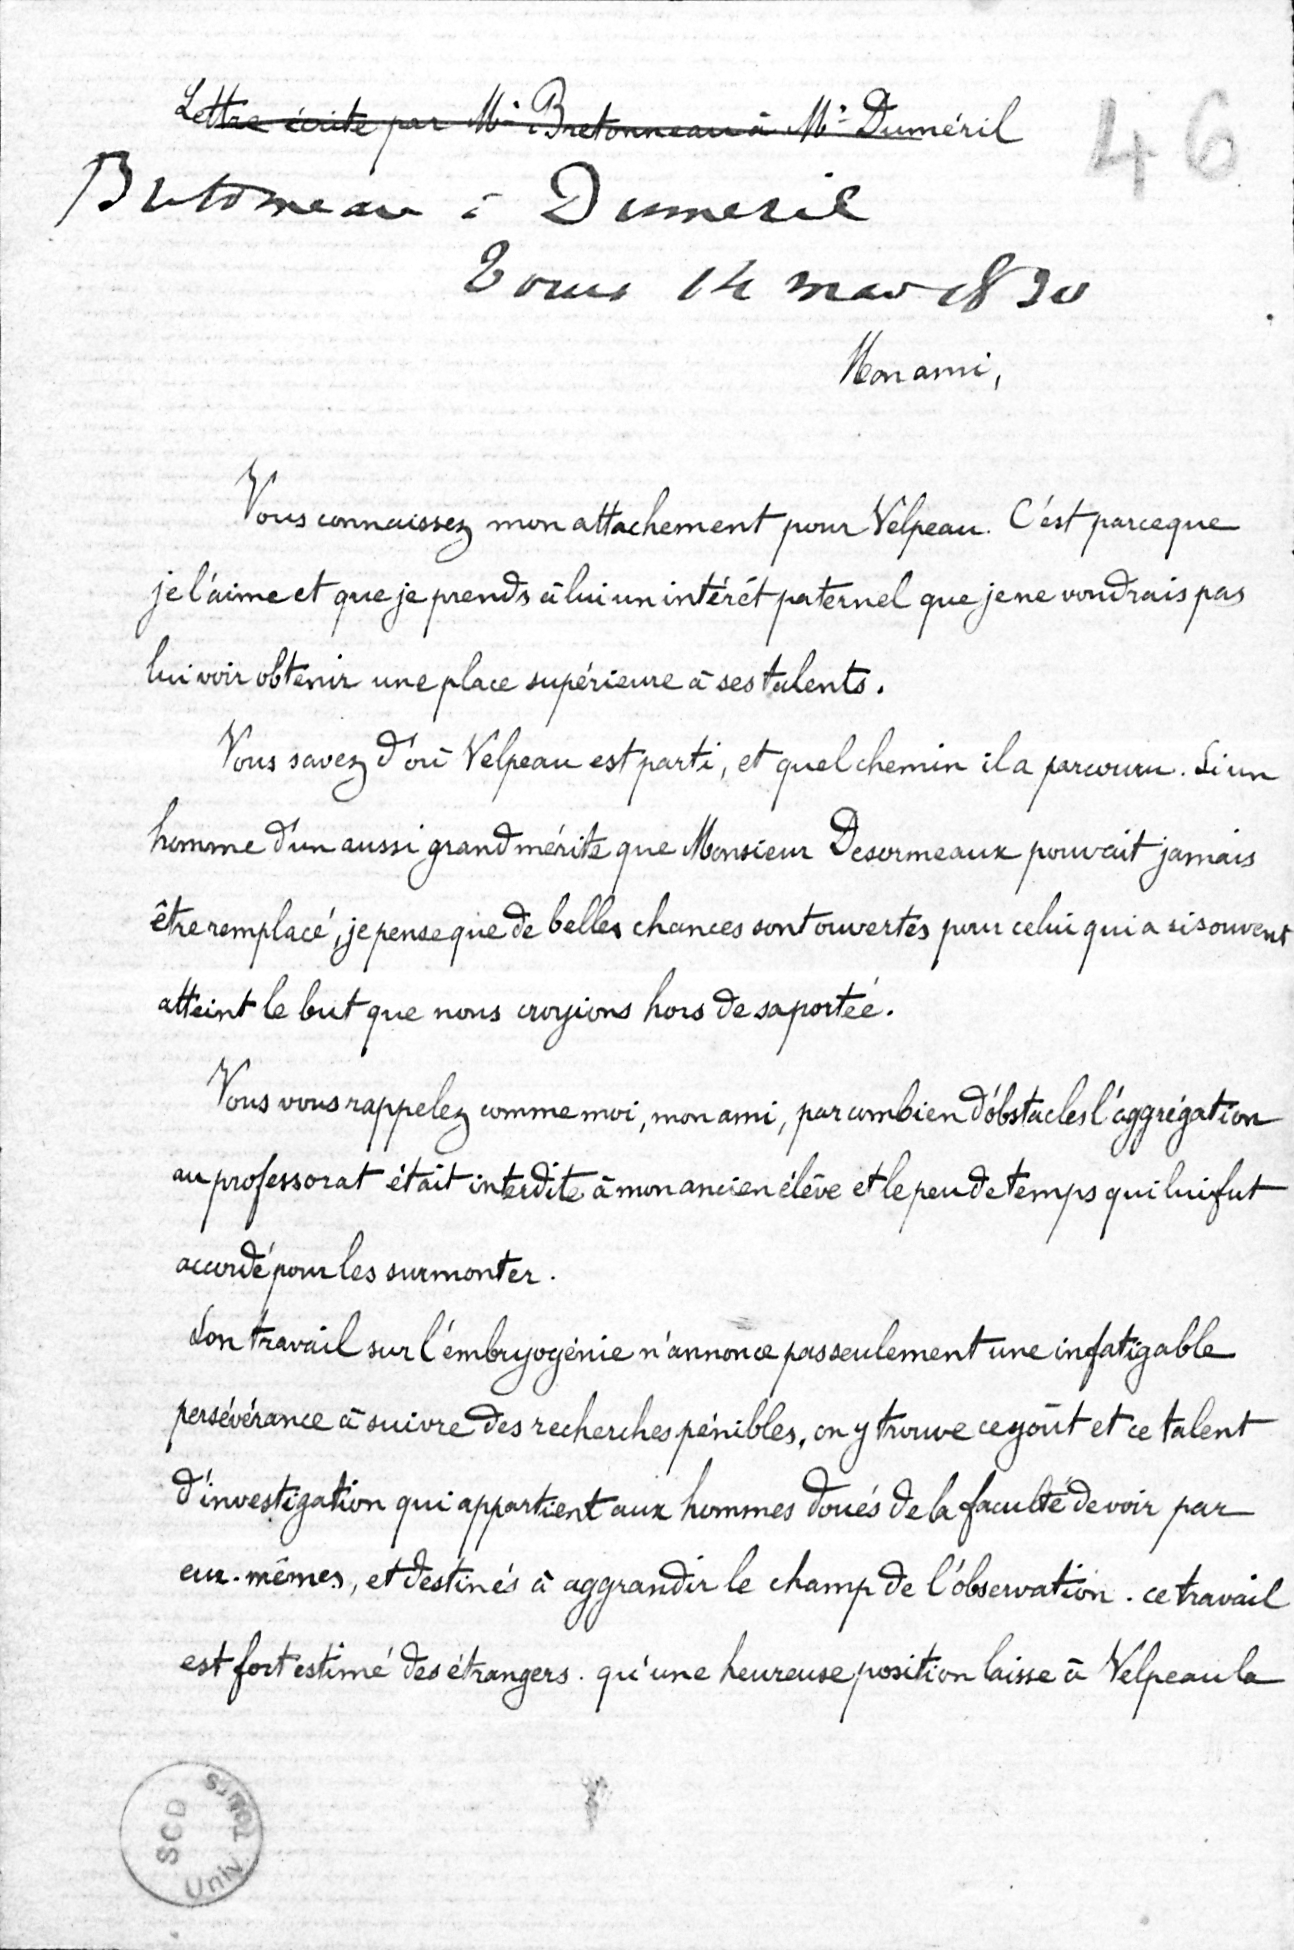 Lettre écrite par Mr Bretonneau à Mr Duméril
46
Bretonneau à Dumeril
Tours 14 mars 1830
Mon ami,
Vous connaissez mon attachement pour Velpeau. C'est parceque
je l'aime et que je prends à lui un intérêt paternel que je ne voudrais pas
lui voir obtenir une place supérieure à ses talents.
Vous savez d'où Velpeau est parti, et quel chemin il a parcouru. Si un
homme d'un aussi grand mérite que Monsieur Desormeaux pouvait jamais
être remplacé, je pense que de belles chances sont ouvertes pour celui qui a si souvent
atteint le but que nous croyions hors de sa portée.
Vous vous rappelez comme moi, mon ami, par combien d'obstacles l'aggrégation
au professorat était interdite à mon ancien élève et le peu de temps qui lui fut
accordé pour les surmonter.
Son travail sur l'embryogénie n'annonce pas seulement une infatigable
persévérance à suivre des recherches pénibles, on y trouve ce goût et ce talent
d'investigation qui appartient aux hommes doués de la faculté de voir par
eux-mêmes, et destinés à aggrandir le champ de l'observation. ce travail
est fort estimé des étrangers. qu'une heureuse position laisse à Velpeau la
SCD
Univ Tours